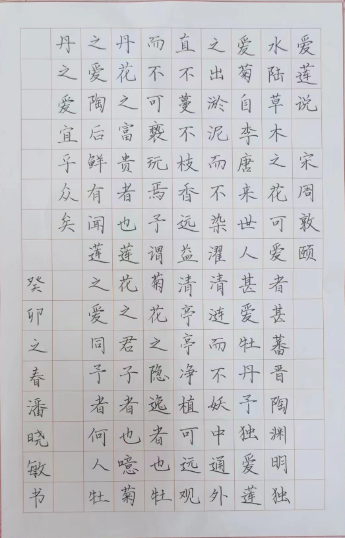 爱莲说 宋周敦颐
水陆草木之花可爱者甚蕃晋陶渊明独
爱菊自李唐来世人甚爱牡丹予独爱莲
之出淤泥而不染濯清涟而不妖中通外
直不蔓不枝香远益清亭亭净植可远观
而不可亵玩焉予谓菊花之隐逸者也牡
丹花之富贵者也莲花之君子者也噫菊
之爱陶后鲜有闻莲之爱同予者何人牡
丹之爱宜乎众矣
癸卯之春潘晓敏书